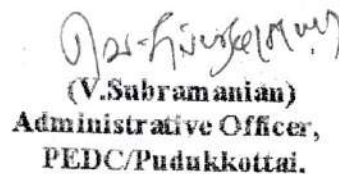 (V.Subramanian)
Administrative Officer,
PEDC/Pudukkottai.